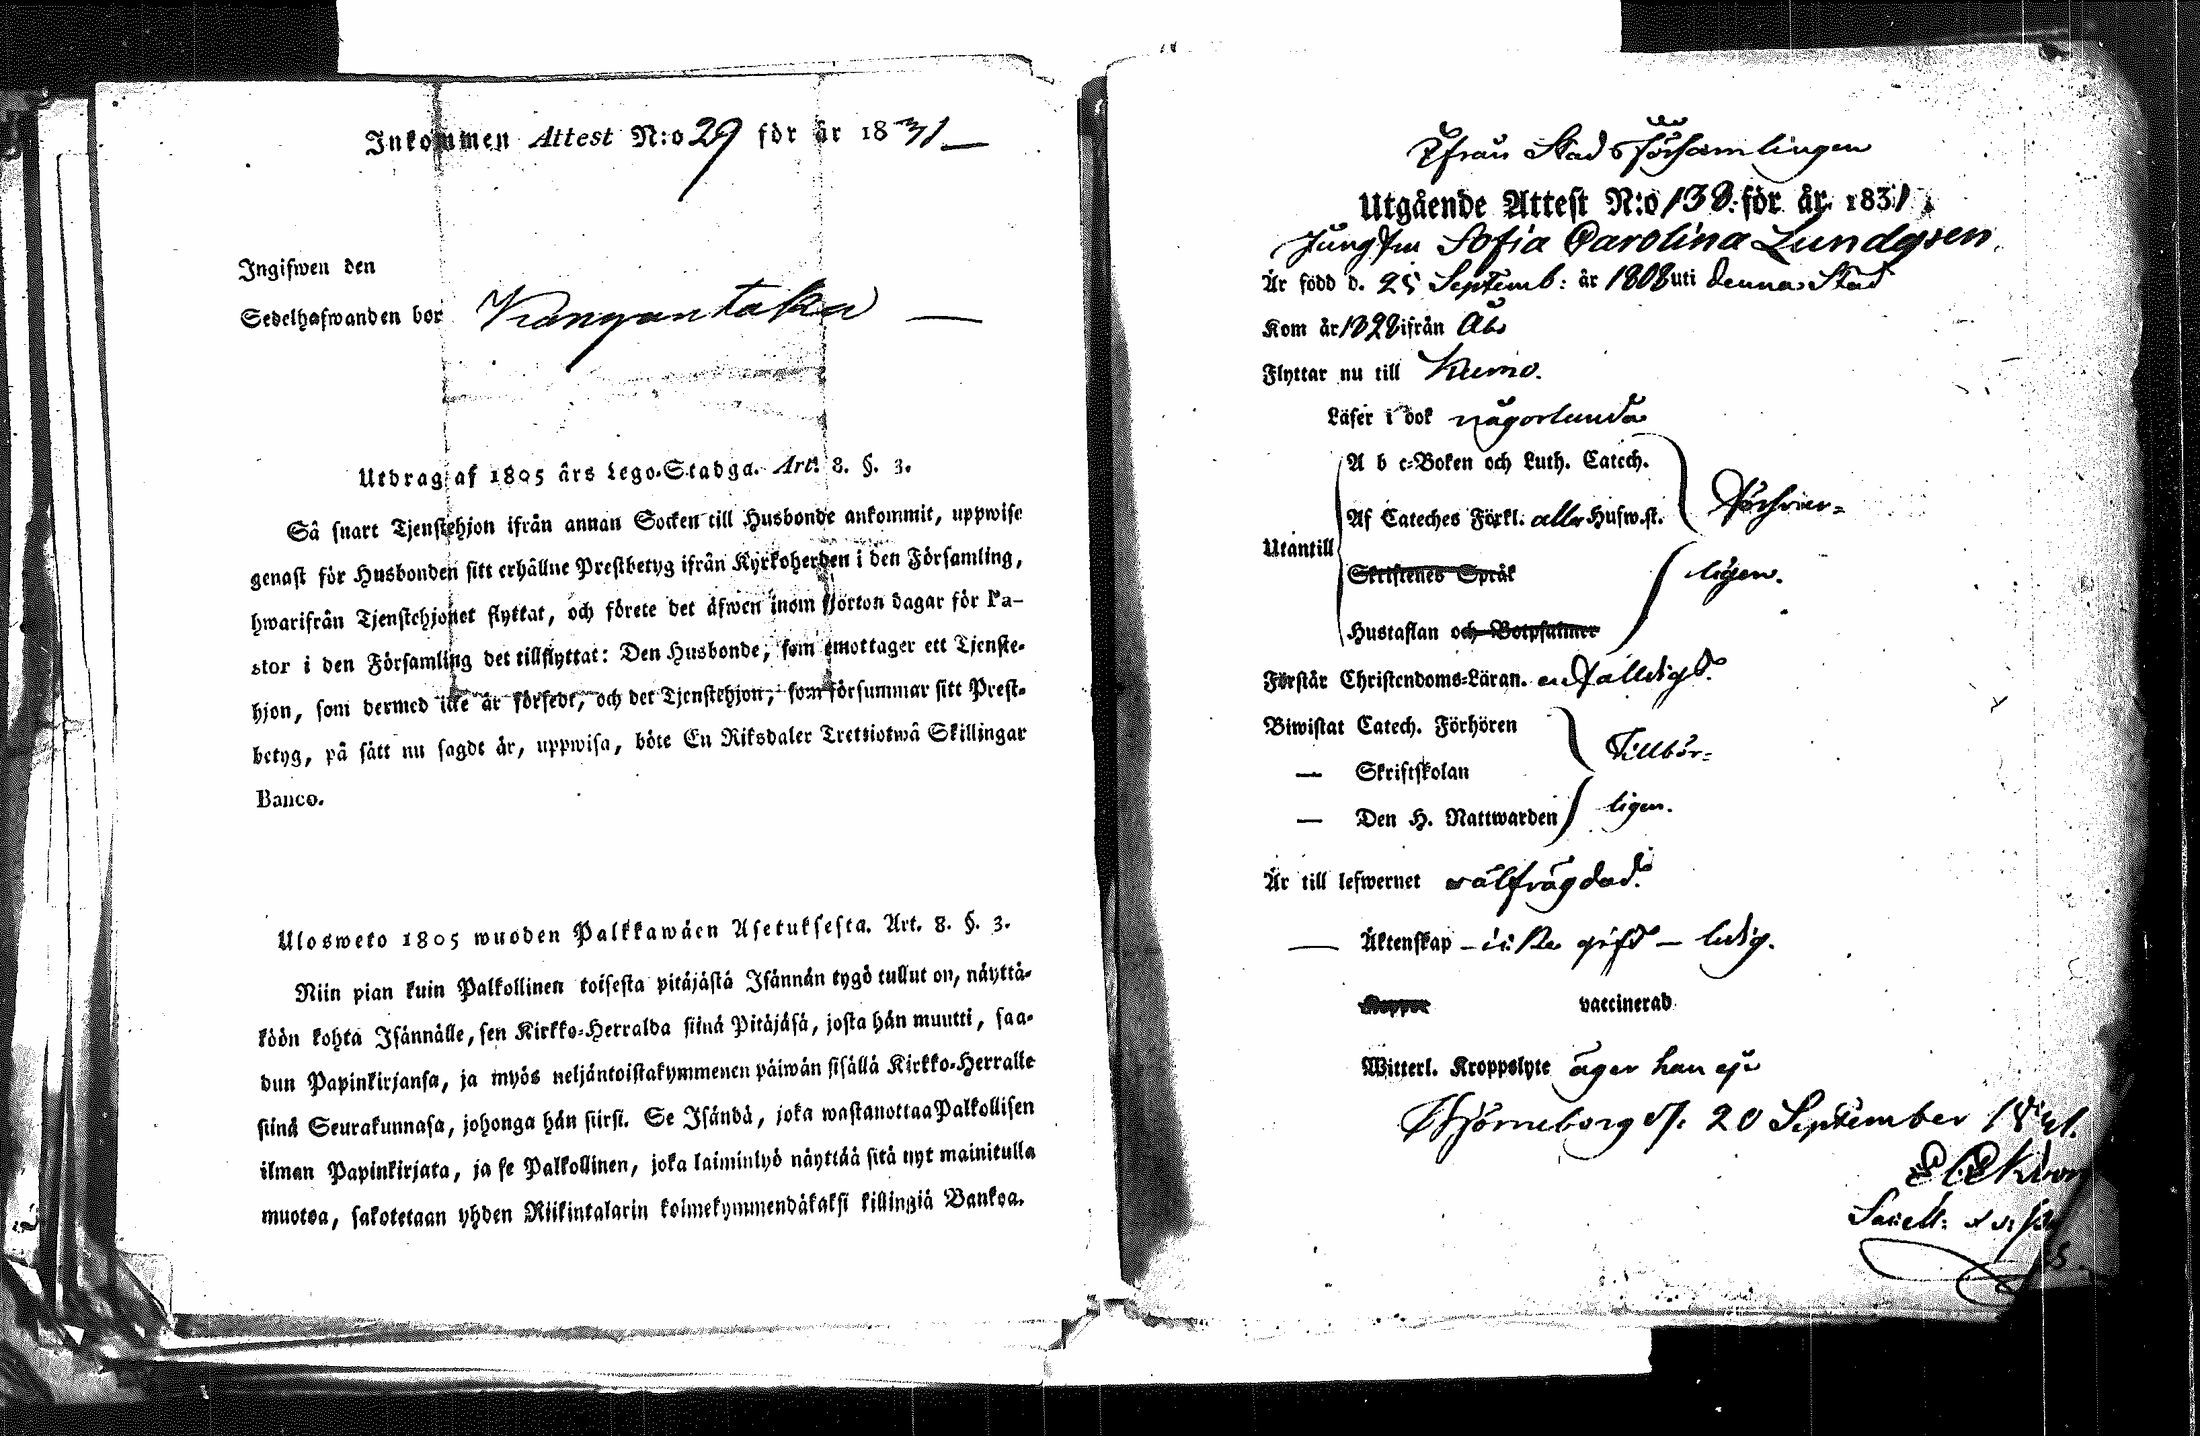 Inkommen Attest N:o 29 för år 1831
Ingifwen den
Sedelhafwanden bor Kangantaka
Utdrag af 1805 års Lego-Stadga. Art. 8. §. 3.
Så snart Tjenstehjon ifrån annan Socken till Husbonde ankommit, uppwise
genast för Husbonden sitt erhållne Prestbetyg ifrån Kyrkoherden i den Församling,
hwarifrån Tjenstehjonet flyttat, och förete det äfwen inom fjorton dagar för Pa-
stor i den Församling det tillflyttat: Den Husbonde, som emottager ett Tjenste-
hjon, som dermed icke är försedt, och det Tjenstehjon, som försummar sitt Prest-
betyg, på sätt nu sagdt är, uppwisa, böte En Riksdaler Trettiotwå Skillingar
Banco.
Ulosweto 1805 wuoden Palkkawäen Asetuksesta. Art. 8. §. 3.
Niin pian kuin Palkollinen toisesta pitäjästä Isännän tygö tullut on, näyttä-
köön kohta Isännälle, sen Kirkko-Herralda siinä Pitäjäsä, josta hän muutti, saa-
dun Papinkirjansa, ja myös neljäntoistakymmenen päiwän sisällä Kirkko-Herralle
siinä Seurakunnasa, johonga hän siirsi. Se Isändä, joka wastanottaa Palkollisen
ilman Papinkirjata, ja se Palkollinen, joka laiminlyö näyttää sitä nyt mainitulla
muotoa, sakotetaan yhden Riikintalarin kolmekymmendäkaksi killingiä Bankoa.
Ifrån Stadsförsamlingen
Utgående Attest N:o 138. för år 1831
Jungfru Sofia Carolina Lundgren
Är född d. 25 Septemb: år 1808 uti denna Stad
Kom år 1828 ifrån Åbo
Flyttar nu till Kumo.
Läser i bok någorlunda
A b c-Boken och Luth. Catech.
Af Cateches Förkl. alla Hufw.st. Försvar-
Utantill
Skriftenes Språk ligen.
Hustaflan och Botpsalmer
Förstår Christendoms-Läran. enfaldigt.
Biwistat Catech. Förhören
— Skriftskolan Tillbör-
— Den H. Nattwarden ligen.
Är till lefwernet välfrägdad.
— Äktenskap – icke gift – ledig.
Koppor vaccinerad
Witterl. Kroppslyte äger han ej
Björneborg d. 20 September 1831.